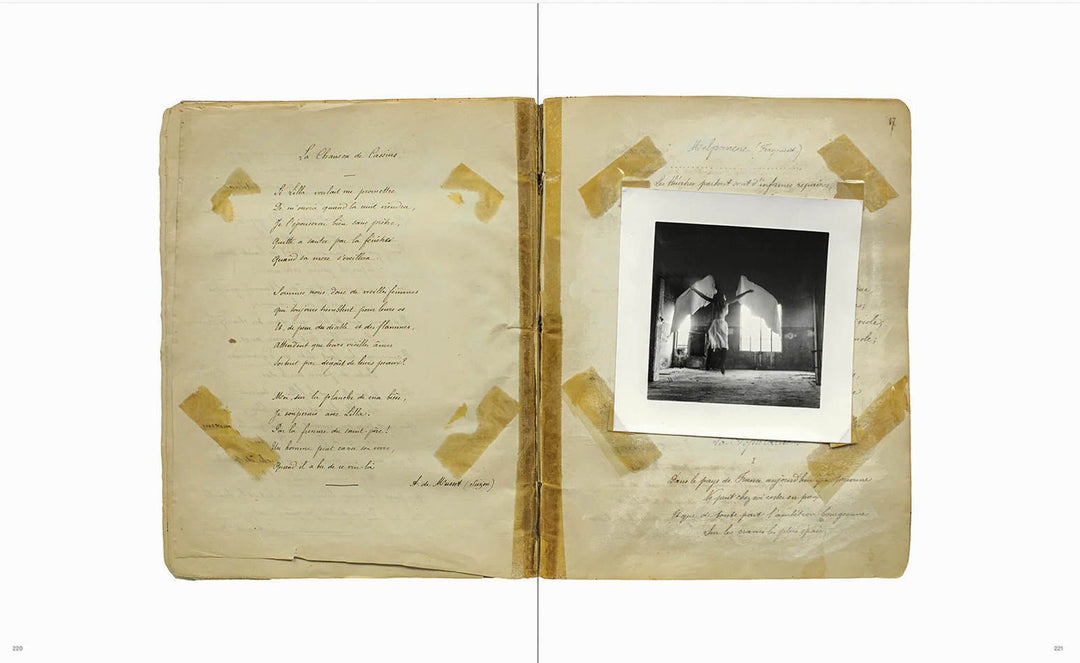 La Chanson de Cassius
Si Lilla voulait me promettre
De m'ouvrir quand la nuit viendra,
Je l'épouserai bien sans prêtre,
Quitte à sauter par la fenêtre
Quand sa mère s'éveillera.
Sommes nous donc de vieilles femmes
qui toujours tremblent pour leurs os
Et, de peur du diable et des flammes,
Attendent que leurs vieilles âmes
Sortent par dégoût de leurs peaux?
Moi, sur la planche de ma bière,
Je souperais avec Lilla.
Par la femme du saint père!
Un homme peut casser son verre,
Quand il a bu de ce vin-là
A. de Musset (Suzon)
220
17
Melpomene (Fragment)
Les théâtres partout sont d'infâmes repaires,
I
Dans le pays de France aujourd'hui que personne
Ne peut chez soi rester en paix
Et que de toute part l'ambition bourgeonne
Sur les crânes les plus épais,
221